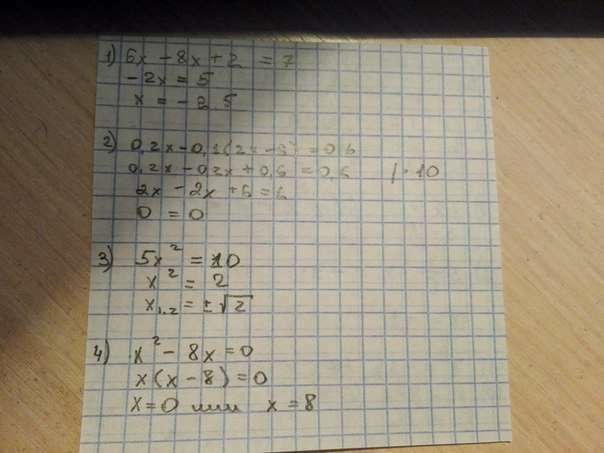 1) 6x - 8x + 2 = 7
-2x = 5
x = -2.5
2) 0,2x - 0,1(2x - 6) = 0,6
0,2x - 0,2x + 0,6 = 0,6 | · 10
2x - 2x + 6 = 6
0 = 0
3) 5x² = 10
x² = 2
x₁,₂ = ±√2
4) x² - 8x = 0
x(x - 8) = 0
x = 0 или x = 8